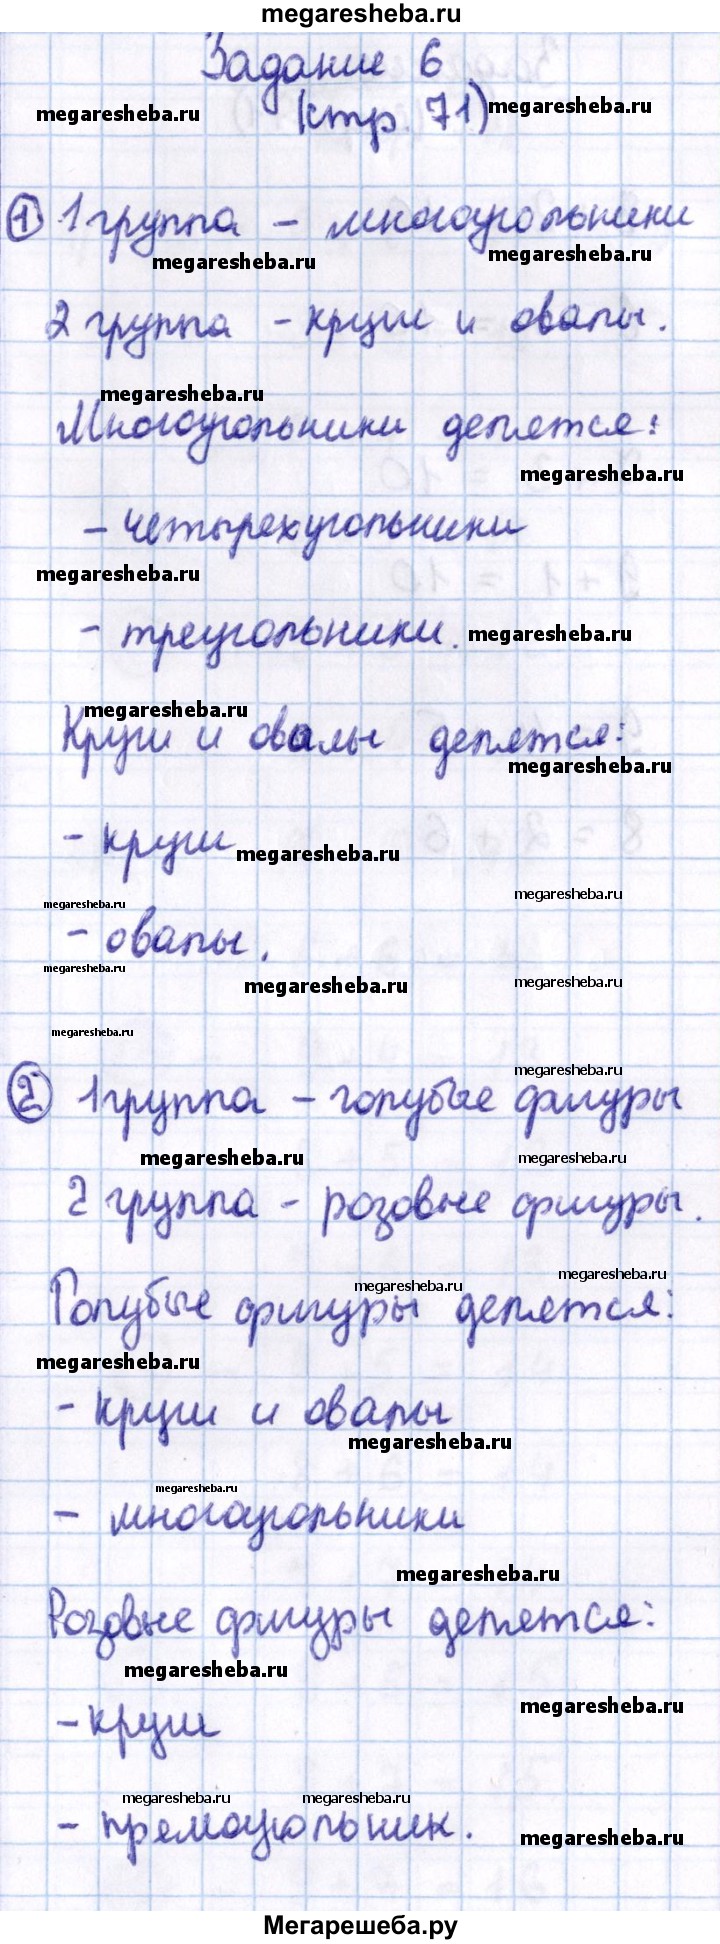 megaresheba.ru
Задание 6
megaresheba.ru
(стр. 71)
megaresheba.ru
① 1 группа – многоугольники
megaresheba.ru
megaresheba.ru
2 группа – круги и овалы.
megaresheba.ru
Многоугольники делятся:
megaresheba.ru
– четырехугольники
megaresheba.ru
– треугольники.
megaresheba.ru
megaresheba.ru
Круги и овалы делятся:
megaresheba.ru
– круги
megaresheba.ru
megaresheba.ru
megaresheba.ru
– овалы.
megaresheba.ru
megaresheba.ru
megaresheba.ru
megaresheba.ru
megaresheba.ru
② 1 группа – голубые фигуры
megaresheba.ru
megaresheba.ru
2 группа – розовые фигуры.
megaresheba.ru
megaresheba.ru
Голубые фигуры делятся:
megaresheba.ru
– круги и овалы
megaresheba.ru
megaresheba.ru
– многоугольники
megaresheba.ru
Розовые фигуры делятся:
megaresheba.ru
megaresheba.ru
– круги
megaresheba.ru
megaresheba.ru
– прямоугольник.
megaresheba.ru
Мегарешеба.ру